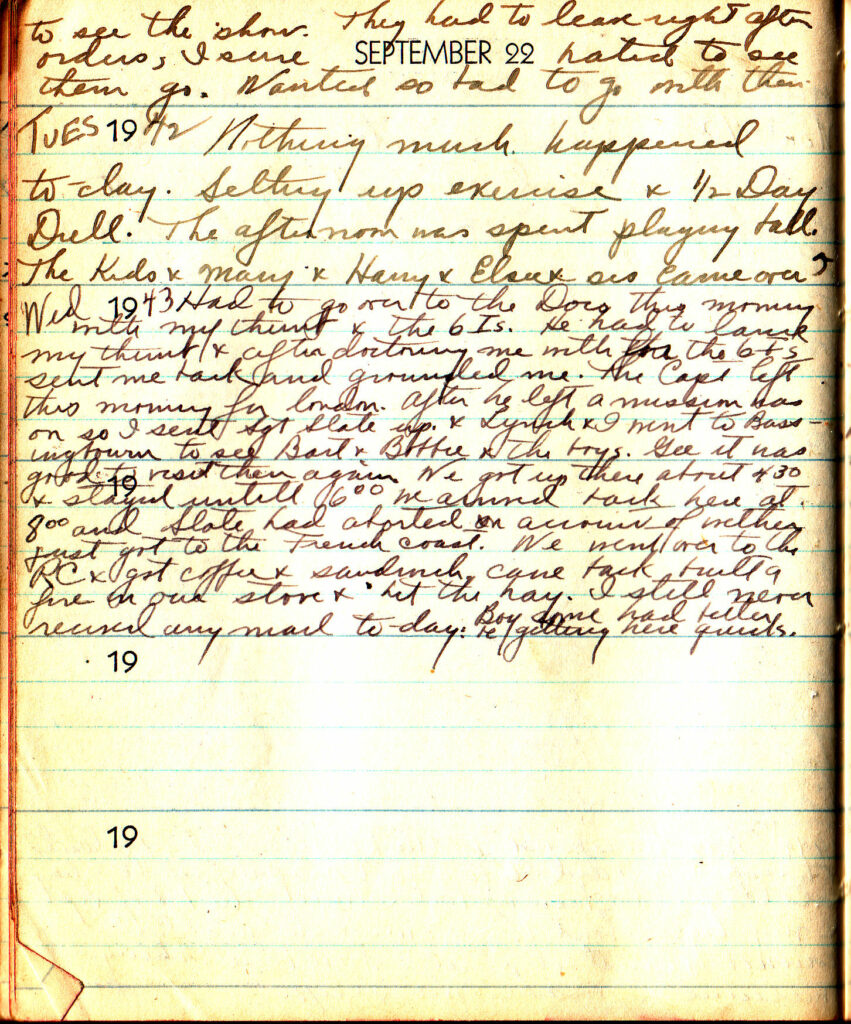 to see the show. They had to leave right after
orders, I sure SEPTEMBER 22 hated to see
them go. Wanted so bad to go with them
TUES 19 42 Nothing much happened
to-day. Setting up exercise & 1/2 Day
Drill. The afternoon was spent playing ball.
The Kids & Mary & Harry & Elsie & sis came over
Wed 19 43 Had to go over to the Docs this morning
with my thumb & the 6 Is. He had to lance
my thumb & after doctoring me with for the 6 Is
sent me back and grounded me. The Capt left
this morning for london. After he left a mission was
on so I sent Sgt Slate up. & Lynch & I went to Bass-
ingbourn to see Bart & Bobbie & the boys. Gee it was
good to visit them again We got up there about 4 30
19
& stayed untill 6 00 we arrived back here at
8 00 and Slate had aborted on account of wether
just got to the French coast. We went over to the
RC & got coffee & sandwich, came back built a
fire in our stove & hit the hay. I still never
recived any mail to-day. Boy some had better
be getting here quick.
19
19